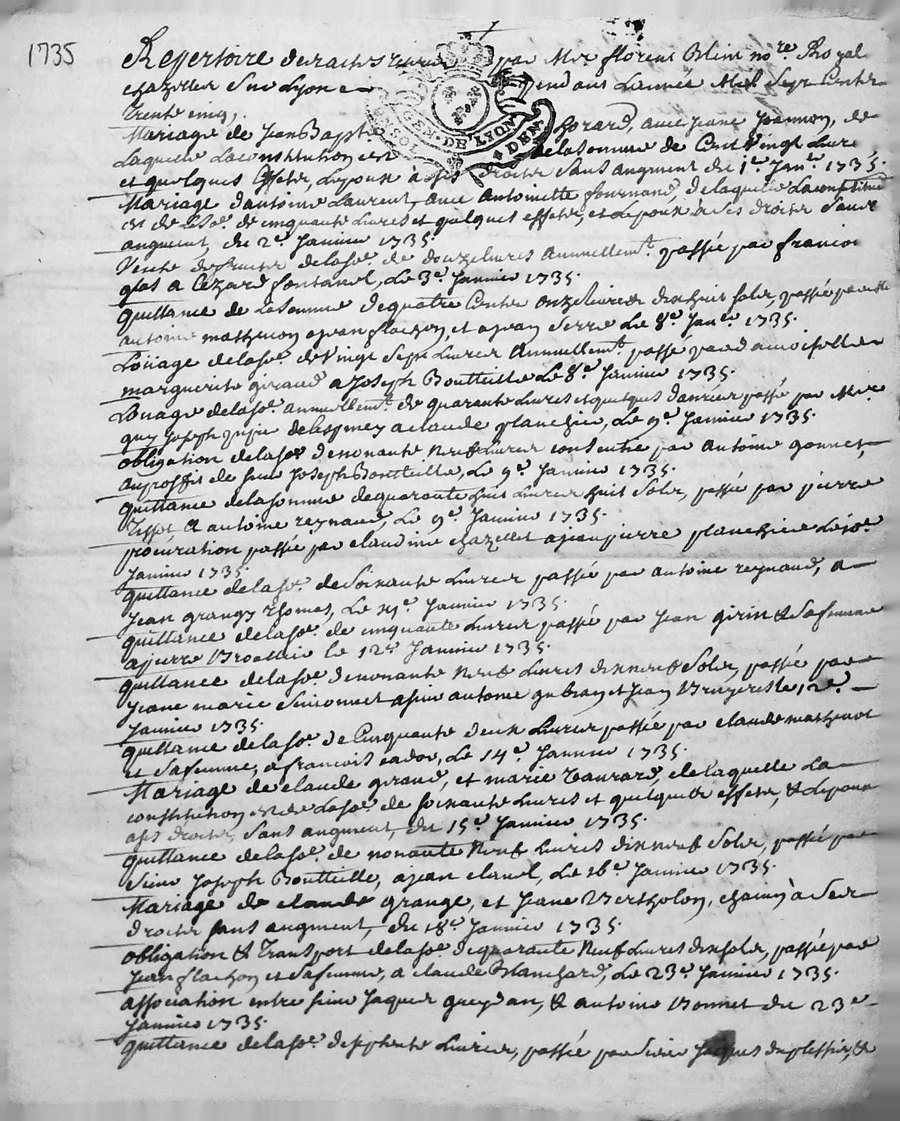 1735
Repertoire des actes receus par Me florens Blein nore. Royal
chazelles sur Lyon pendant L'année Mil Sept Cents
Trente cinq,
Mariage de Jean Bapt. avec Jeane de
Laquelle La constitution est de la somme de Cent Vingt Livres
et quelques effets, L'epoux a ses droits sans augment du 1er. Janer. 1735.
Mariage d'antoine Laurent, avec antoinette fournand, de laquelle La constitution
est de La se. de cinquante Livres et quelques effets, et L'epoux a ses droits sans
augment, du 2e. Janvier 1735.
Vente de fruits de la se. de douze livres annuellemt. passée par francois
gas a Cézard fontanel, Le 3e. Janvier 1735.
quittance de La somme de quatre Cents onze livres dix huit sols, passée par
antoine mathevon a jean flachon, et a jean Serre Le 8e. Janer. 1735.
Loüage de la se. de Vingt Sept Livres annuellemt. passé par damoiselle
marguerite giraud a Joseph Boutteille Le 8e. Janvier 1735.
Loüage de la se. annuellemt. de quarante Livres et quelques danrées passé par Mre.
guy Joseph de Lespiney a claude planchie, Le 9e. Janvier 1735.
obligation de la se. de nonante neuf Livres consentie par antoine gonnet,
au proffit de sieur Joseph Boutteille, Le 9e. Janvier 1735.
quittance de la somme de quarante huit Livres huit sols, passée par pierre
Tissot a antoine reynaud, Le 9e. Janvier 1735.
procuration passée par claudine chazellet a jean pierre planchie Le 10e.
Janvier 1735.
quittance de la se. de Soixante Livres passée par antoine reynaud, a
Jean grange Thomas, Le 11e. Janvier 1735.
quittance de la se. de cinquante Livres passée par Jean girin et sa femme
a pierre Le 12e Janvier 1735.
quittance de la se. de nonante neuf Livres dix neuf Sols, passée par
Jeane marie Simonnet a sieur antoine et Jean Bruyere Le 12e.
Janvier 1735.
quittance de la se. de Cinquante deux Livres passée par claude mathevot
et sa femme, a francois cador, Le 14e. Janvier 1735.
Mariage de claude giraud, et marie de laquelle La
constitution est de La se. de soixante Livres et quelques effets, et L'epoux
a ses droits, sans augment, du 15e. Janvier 1735.
quittance de la se. de nonante Neuf Livres dix neuf Sols, passée par
Sieur Joseph Boutteille, a jean clavel, Le 16e. Janvier 1735.
Mariage de claude grange, et Jeane Bertholon, chacun à Ses
droits sans augment, du 18e. Janvier 1735.
obligation et transport de la se. de quarante Neuf Livres dix sols, passée par
Jean flachon et sa femme, a claude Blanchard, Le 23e. Janvier 1735.
association entre sieur Jaques et antoine Bonnet du 23e.
Janvier 1735.
quittance de la se. de sept cents Livres, passée par Sieur Jacques duplessis, et
GEN. DE LYON